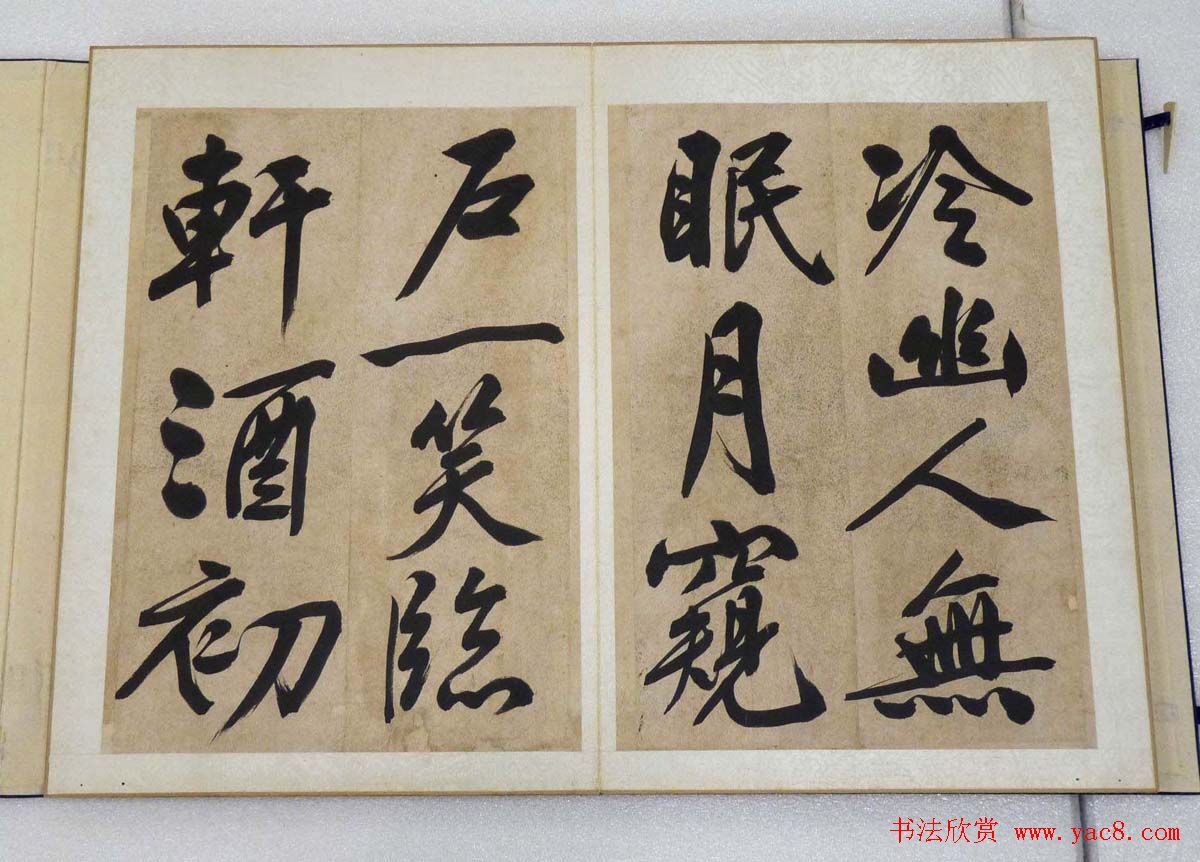 冷幽人無
眠月窺
戶一笑臨
軒酒初
书法欣赏 www.yac8.com